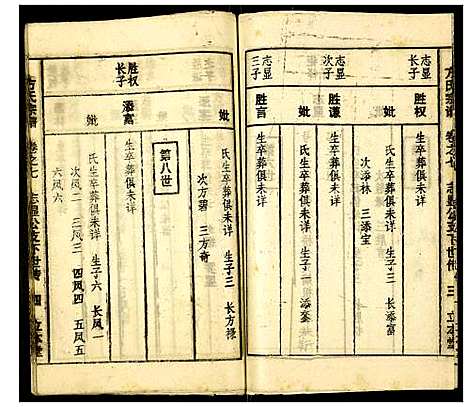 方氏宗谱 卷之七 志显公位下世传 三 立本堂
胜权
妣
氏生卒葬俱未详 生子三 长添富
次添林 三添宝
志显
次子
胜谦
生卒葬俱未详
妣
氏生卒葬俱未详 生子一 添奎
志显
三子
胜言
生卒葬俱未详
妣
氏生卒葬俱未详 生子三 长方禄
次方碧 三方奇
第八世
胜权
长子
添富
生卒葬俱未详
妣
氏生卒葬俱未详 生子六 长凤一
次凤二 三凤三 四凤四 五凤五
六凤六
方氏宗谱 卷之七 志显公位下世传 四 立本堂